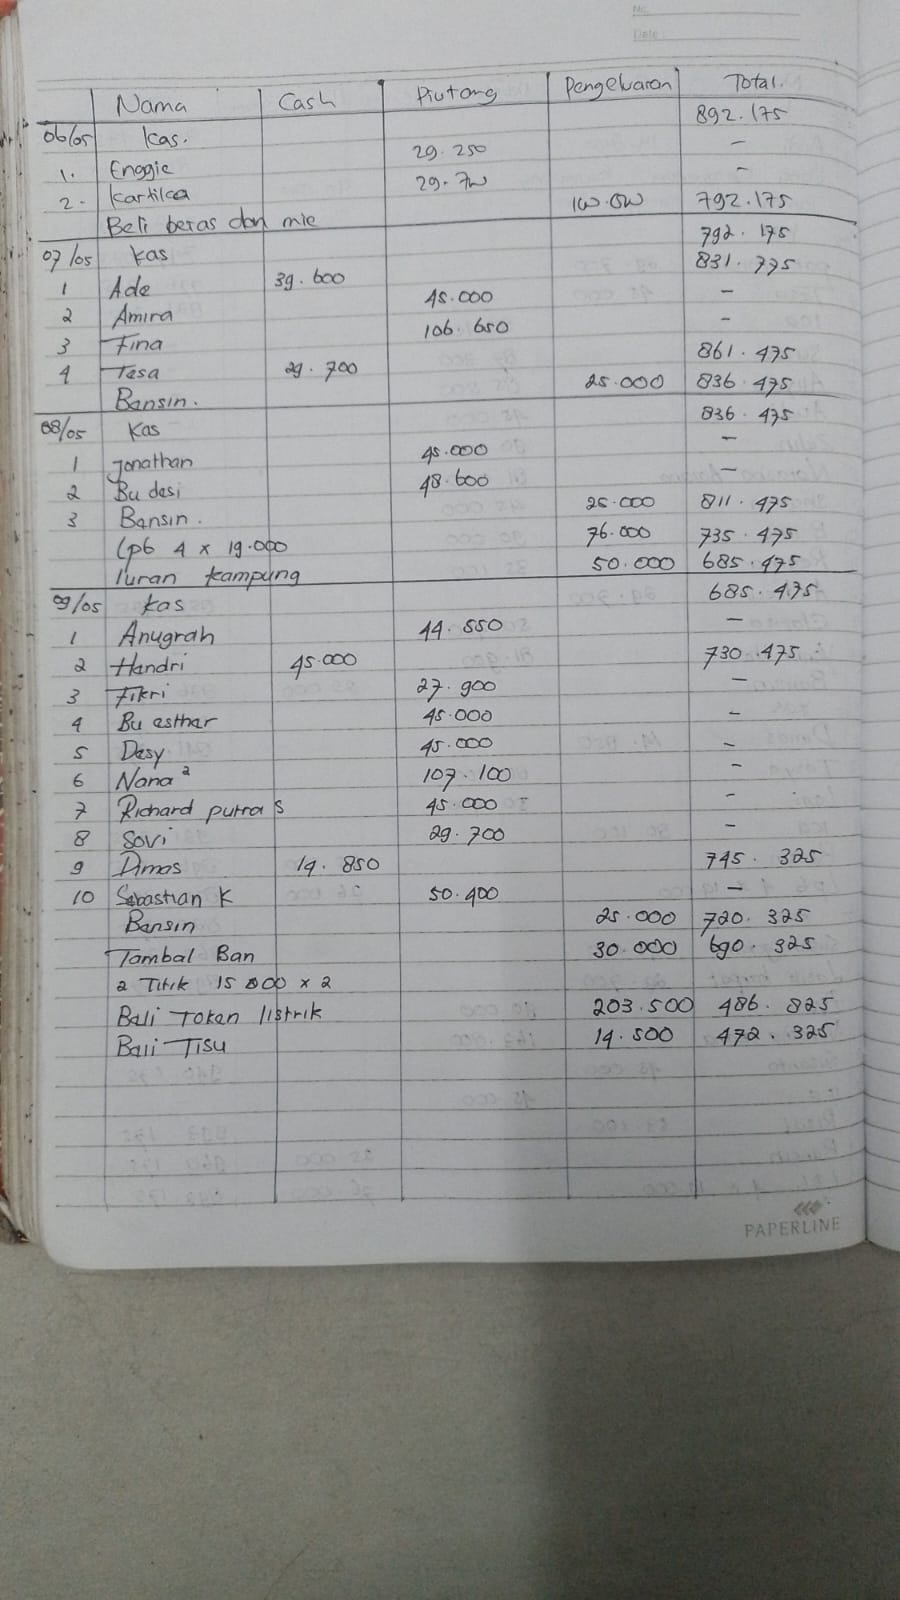 No.
Date:
Nama Cash Piutang Pengeluaran Total.
06/05 Kas. 892.175
1. Enggie 29.250 -
2. Kartika 29.700 -
Beli beras dan mie 100.000 792.175
07/05 Kas 792.175
1 Ade 39.600 831.775
2 Amira 45.000 -
3 Fina 106.650 -
4 Tasa 29.700 861.475
Bansin. 25.000 836.475
08/05 Kas 836.475
1 Jonathan 45.000 -
2 Bu desi 48.600 -
3 Bansin. 25.000 811.475
Lpb 4 x 19.000 76.000 735.475
Iuran kampung 50.000 685.475
09/05 Kas 685.475
1 Anugrah 44.550 -
2 Handri 45.000 730.475
3 Fikri 27.900 -
4 Bu esthar 45.000 -
5 Desy 45.000 -
6 Nana² 107.100 -
7 Richard putra S 45.000 -
8 Sovi 29.700 -
9 Dimas 14.850 745.325
10 Sebastian K 50.400 -
Bensin 25.000 720.325
Tambal Ban 30.000 690.325
2 Titik 15 000 x 2
Beli Token listrik 203.500 486.825
Beli Tisu 14.500 472.325
PAPERLINE